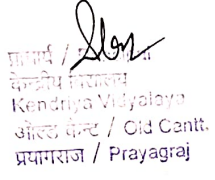 प्राचार्य /
केन्द्रीय विद्यालय
Kendriya Vidyalaya
ओल्ड केन्ट / Old Cantt.
प्रयागराज / Prayagraj